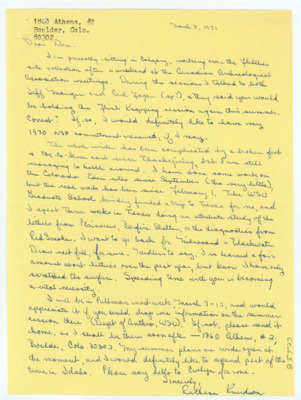 1860 Athens, #2
Boulder, Colo.
80302
March 3, 1971
Dear Don:
I'm presently sitting in Calgary, working over the Fletcher
site collection after a weekend at the Canadian Archaeological
Association meetings. During the sessions I talked to both
Jeff and they said you would
be holding the Flint Knapping session again this summer.
Correct? If so, I would definitely like to honor my
1970 NSF commitment renewed, if I may.
The whole winter has been complicated by a broken foot
in a cast since Thanksgiving, but I'm still
managing to hobble around. I have done some work on
the Colorado Eden sites since September (the very little),
but the real work has been since February 1. The WSU
Graduate School kindly funded a trip to Texas for me, and
I spent three weeks in Texas doing an attribute study of the
lithics from Plainview, Bonfire Shelter, & the diagnostics from
Red Smoke. I want to go back for Milnesand & Blackwater
Draw next fall, for sure. Needless to say, I've learned a fair
amount about lithics over the past year, but know I have only
scratched the surface. Spending time with you is becoming
a vital necessity.
I will be in Pullman next week March 7-12, and would
appreciate it if you would drop me information on the summer
session there (Dept of Anthro, WSU). If not, please send it
home, as I shall be there soon after — 1860 Athens, #2,
Boulder, Colo 80302. My summer plans are wide open at
the moment, and I would definitely like to spend part of the
time in Idaho. Please say hello to Evelyn for me.
Sincerely,
Ruthann Knudson